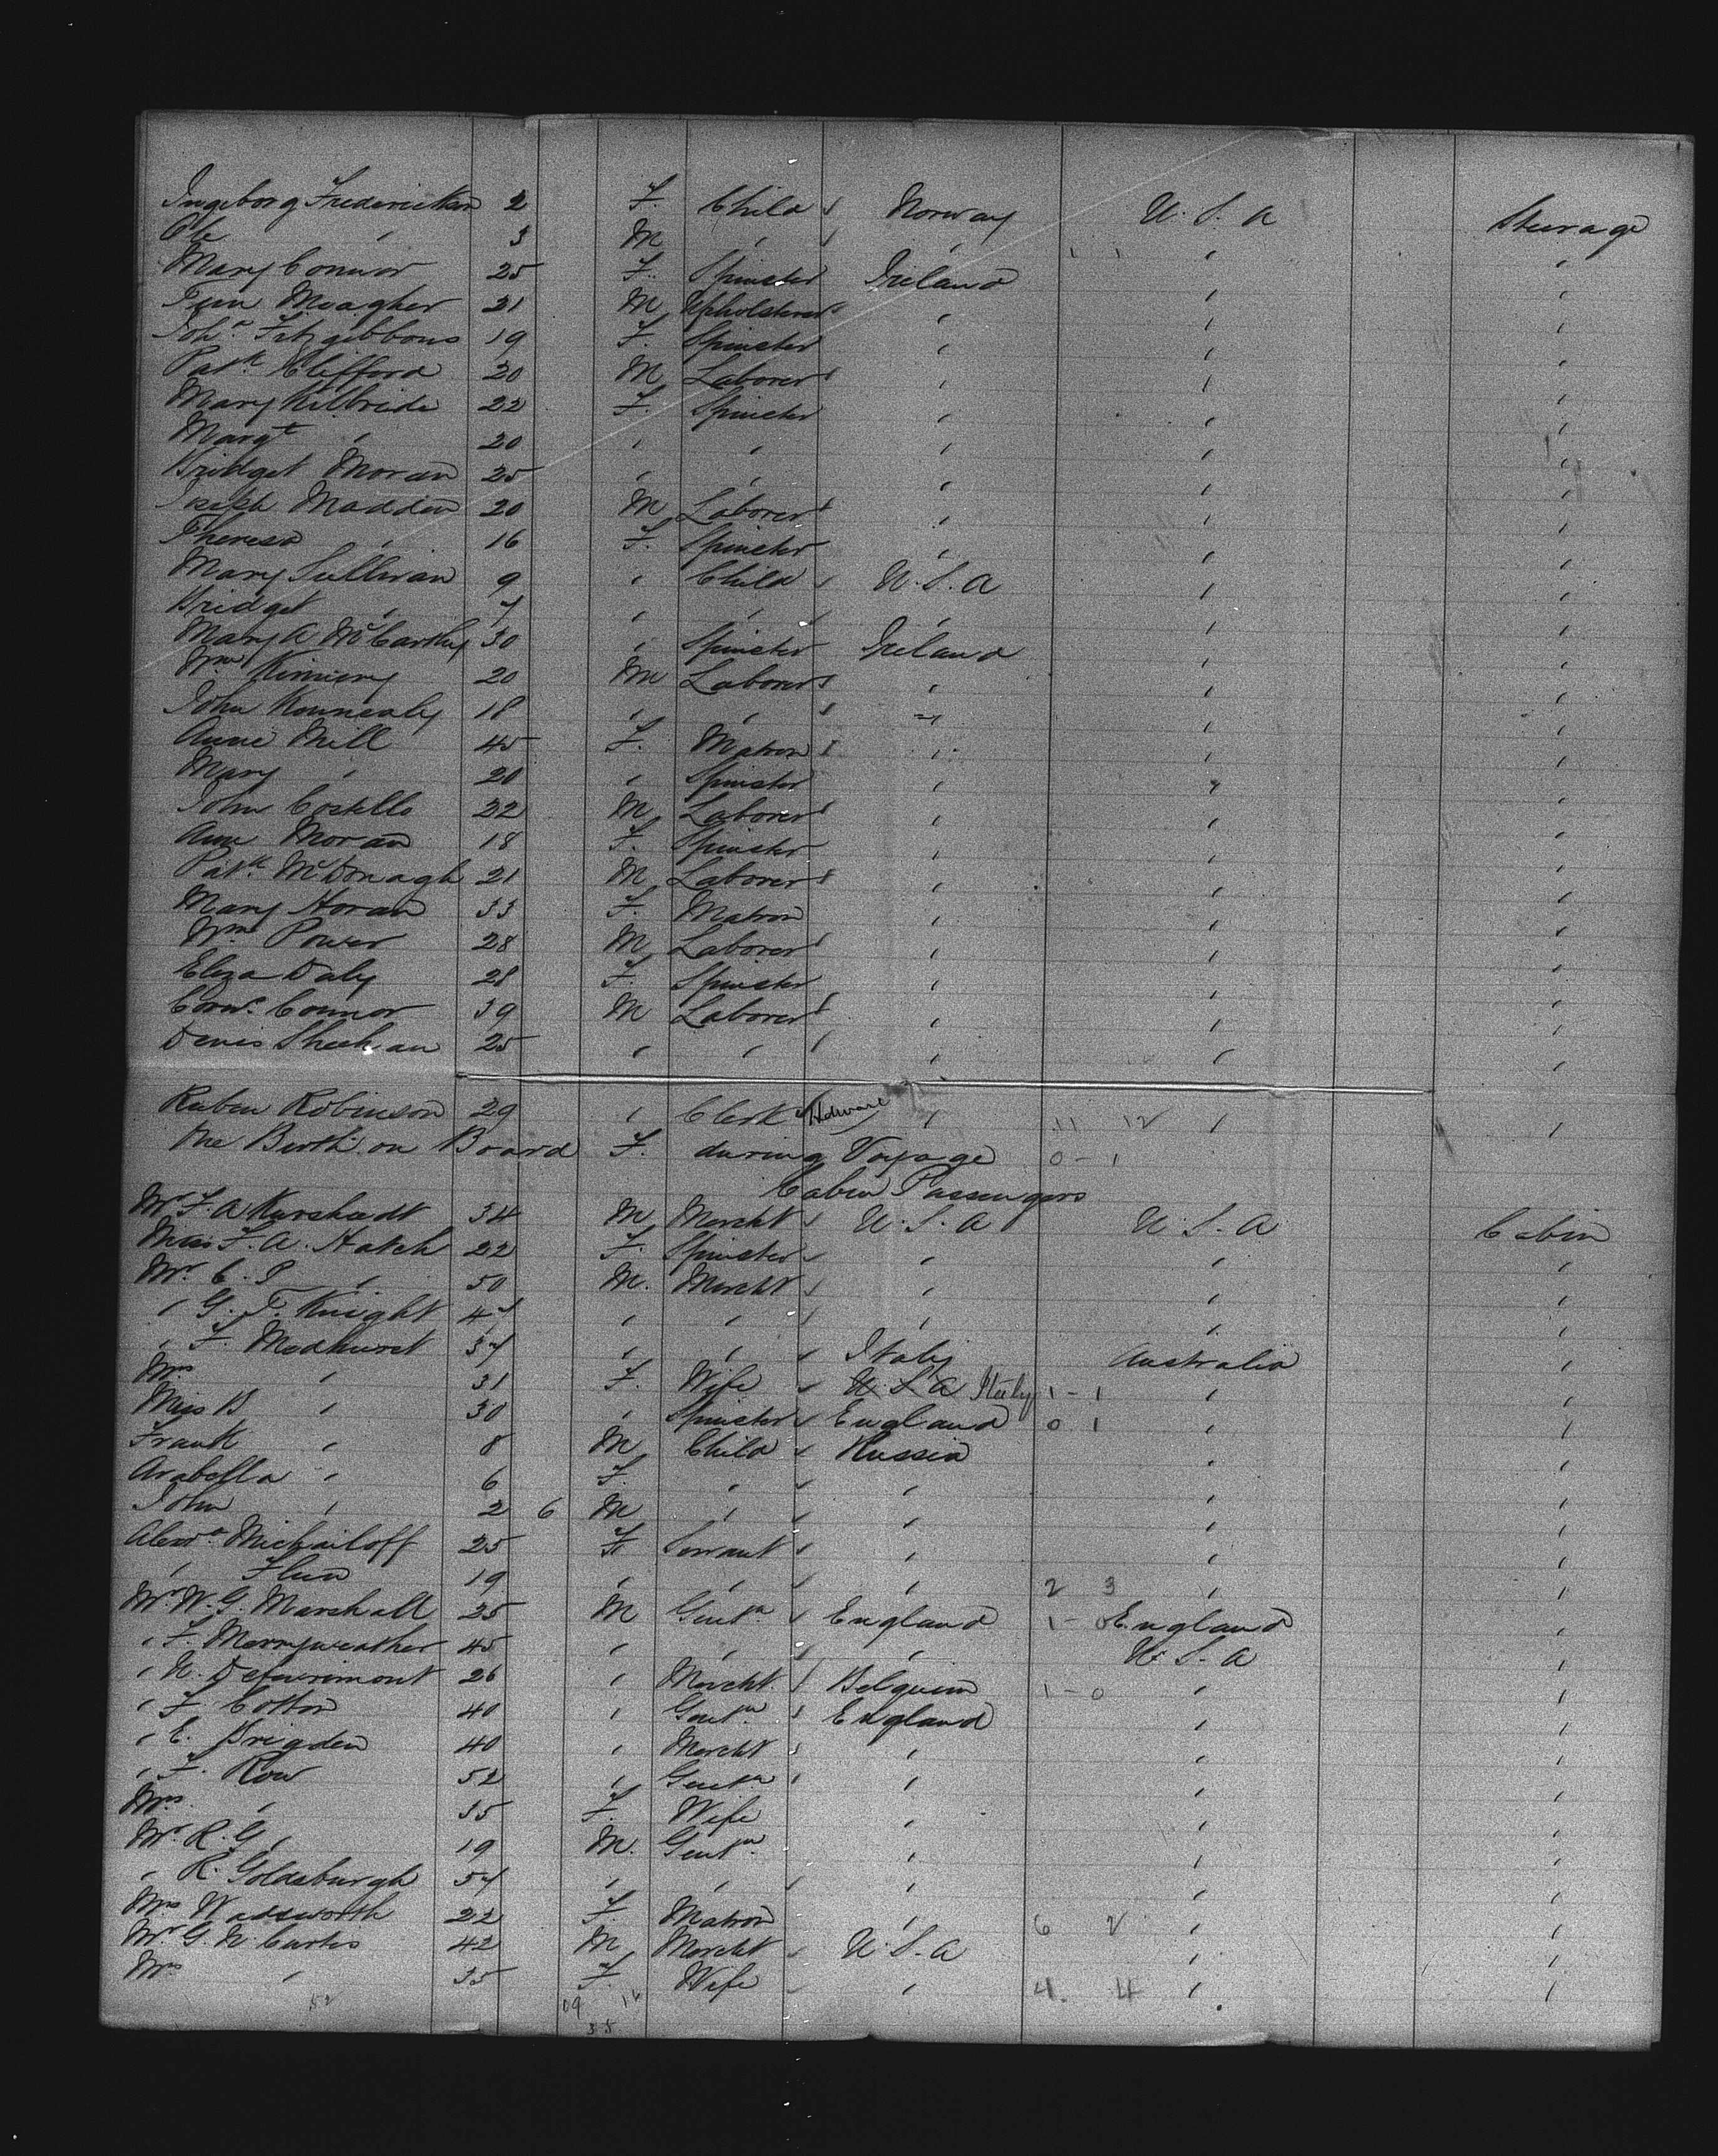 Ingeborg Fredericksen 2 F. Child Norway U.S.A Steerage
Ole " 3 M " " " "
Mary Connor 25 F. Spinster Ireland " "
Meagher 21 M Upholsterer " " "
Joh.a Fitzgibbons 19 F. Spinster " " "
Pat.k Clifford 20 M Laborer " " "
Mary Kilbride 22 F. Spinster " " "
Marg.t " 20 " " " " "
Bridget Moran 25 " " " " "
Joseph Madden 20 M Laborer " " "
Theresa " 16 F. Spinster " " "
Mary Sullivan 9 " Child U.S.A " "
Bridget " 7 " " " " "
Mary A McCarthy 30 " Spinster Ireland " "
Wm 20 M Laborer " " "
John Kennealy 18 " " " " "
Anne Mell 45 F. Matron " " "
Mary " 20 " Spinster " " "
John Costello 22 M Laborer " " "
Ann Moran 18 F. Spinster " " "
Pat.k McDonagh 21 M Laborer " " "
Mary Horan 33 F. Matron " " "
Wm Power 28 M Laborer " " "
Eliza Daly 28 F. Spinster " " "
Corn.s Connor 39 M Laborer " " "
Denis Sheehan 25 " " " " "
Ruben Robinson 29 " Clerk " 11 12 " "
One Birth on Board F. during Voyage 0 - 1
Cabin Passengers
Mr F. A Karshadt 34 M Mercht U.S.A U.S.A Cabin
Miss F. A. Hatch 22 F. Spinster " " "
Mr. C. P. " 50 M. Mercht " " "
" G. T. Knight 47 " " " " "
" F. Medhurst 37 " " Italy Australia "
Mrs " 31 F. Wife U.S.A Italy 1 - 1 " "
Miss B " 30 " Spinster England 0 1 " "
Frank " 8 M Child Russia " "
Arabella " 6 F. " " " "
John " 2 6 M " " " "
Michailoff 25 F. Servant " " "
" 19 " " " 2 3 " "
Mr W. G. Marshall 25 M Gent.n England 1 - 0 England "
" F. Merryweather 45 " " " U.S.A "
" 26 " Mercht. Belguim 1 - 0 " "
" F. Cotton 40 " Gent.n England " "
" E. Brigden 40 " Mercht " " "
" F. Row 52 " Gent.n " " "
Mrs. " 35 F. Wife " " "
Mr. R. G. " 19 M. Gent.n " " "
" R. Goldsburgh 57 " " " " "
Mrs Wadsworth 22 F. Matron " 6 2 " "
Mr G. N. Curtis 42 M Mercht U.S.A " "
Mrs " 35 F. Wife " 4. 4 " "
52 19 16
35